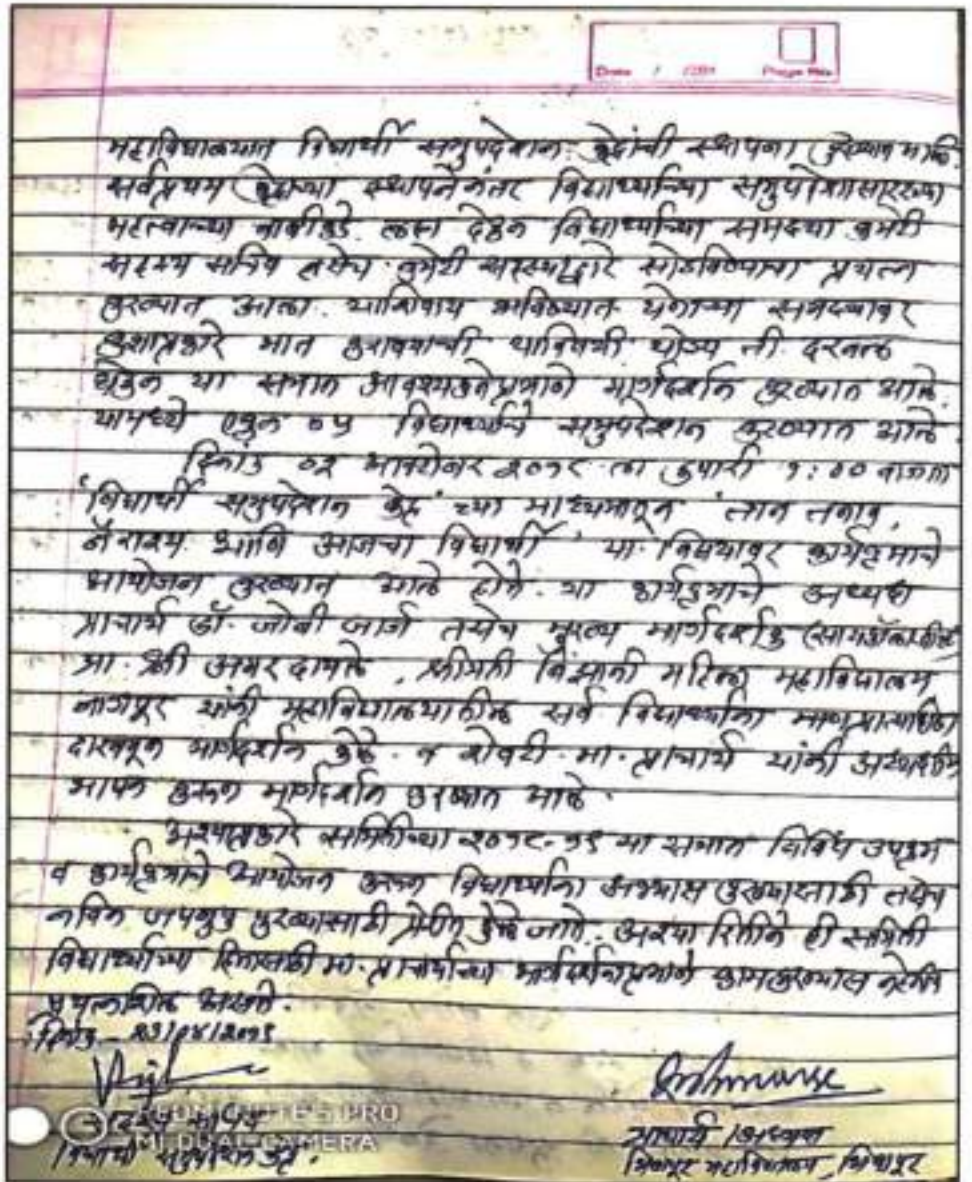 Date / /201 Page No.
महाविद्यालयात विद्यार्थी समुपदेशन केंद्राची स्थापना करण्यात आली.
सर्वप्रथम केंद्राच्या स्थापनेनंतर विद्यार्थ्यांच्या समुपदेशनासारख्या
महत्वाच्या बाबीकडे लक्ष देऊन विद्यार्थ्यांच्या समस्या कमेटी
सदस्य सचिव तसेच कमेटी सदस्याद्वारे सोडविण्याचा प्रयत्न
करण्यात आला. याशिवाय भविष्यात येणाऱ्या समस्यावर
कशाप्रकारे मात करावयाची याविषयी योग्य ती दखल
घेऊन या सत्रात आवश्यकतेप्रमाणे मार्गदर्शन करण्यात आले.
यामध्ये एकुण ०५ विद्यार्थ्यांचे समुपदेशन करण्यात आले.
दिनांक ०२ आक्टोबर २०१८ ला दुपारी १:०० वाजता
'विद्यार्थी समुपदेशन केंद्र' च्या माध्यमातून 'ताण तणाव,
नैराश्य आणि आजचा विद्यार्थी' या विषयावर कार्यक्रमाचे
आयोजन करण्यात आले होते. या कार्यक्रमाचे अध्यक्ष
प्राचार्य डॉ. जोबी जार्ज तसेच मुख्य मार्गदर्शक
प्रा. श्री अमर दामले, श्रीमती बिंझाणी महिला महाविद्यालय
नागपूर यांनी महाविद्यालयातील सर्व विद्यार्थ्यांना
दाखवून मार्गदर्शन केले. व शेवटी मा. प्राचार्य यांनी अध्यक्षीय
भाषण करून मार्गदर्शन करण्यात आले.
अश्याप्रकारे समितीच्या २०१८-१९ या सत्रात विविध उपक्रम
व कार्यक्रमाचे आयोजन करून विद्यार्थ्यांना अभ्यास करण्यासाठी तसेच
नविन उपक्रम करण्यासाठी प्रेरीत केले जाते. अश्या रितीने ही समिती
विद्यार्थ्यांच्या हितासाठी मा. प्राचार्यांच्या मार्गदर्शनाप्रमाणे काम करण्यास नेहमीच
प्रयत्नशिल असते.
दिनांक - २३/०४/२०१९
REDMI NOTE 5 PRO
MI DUAL CAMERA
सदस्य सचिव
विद्यार्थी समुपदेशन केंद्र.
प्राचार्य / अध्यक्ष
भिवापूर महाविद्यालय, भिवापूर